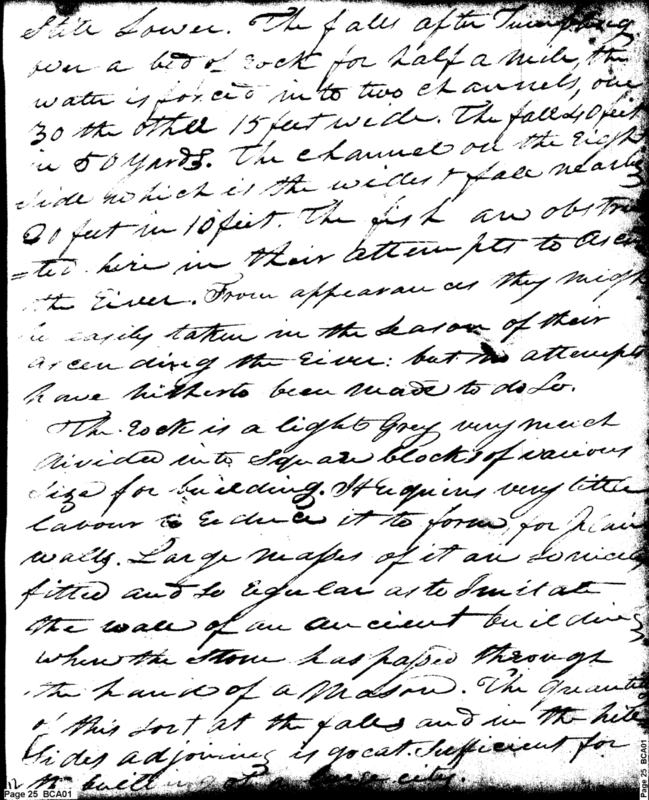 Still Lower. The falls after Tumbling
over a bed of rock for half a mile, the
water is forced into two channels, one
30 the other 15 feet wide. The fall 40 feet
in 50 Yards. The channel on the Right
side which is the widest fall nearly
20 feet in 10 feet. The fish are obstru
=ted here in their attempts to ascen
the River. From appearances they migh
be easily taken in the season of their
ascending the River: but no attempts
have hitherto been made to do So.
The rock is a light Grey very much
divided into Square blocks of various
Size for building. It Requires very little
labour to Reduce it to form for plain
walls. Large masses of it are so nicely
fitted and so Regular as to Imitate
the wall of an ancient building
where the Stone has passed through
the hand of a Mason. The Quantity
of this sort at the falls and in the hill
Sides adjoining is great. Sufficient for
the building of a large city.
12
Page 25 BCA01
Page 25 BCA01